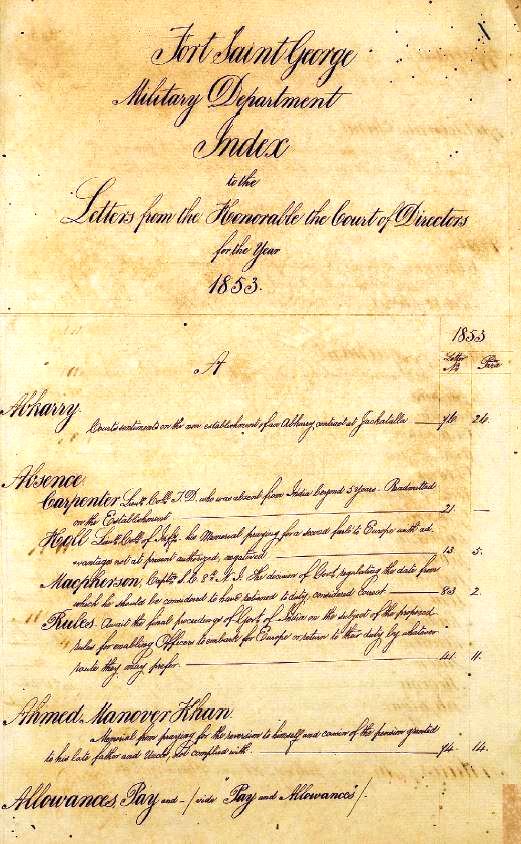 Fort Saint George
Military Department
Index
to the
Letters from the Honorable the Court of Directors
for the Year
1853.
1853
A
Letter No Para
Abkarry.
Court's sentiments on the non establishment of an Abkarry contract at Jackatalla 76. 24.
Absence
Carpenter Lieut. Coll. T. D. who was absent from India beyond 5 years - Readmitted
on the Establishment 21. —
Lieut. Coll. of Infy. his Memorial praying for a second furlo to Europe with ad
vantages not at present authorized, negatived 13. 5.
Macpherson, Captn. 8th N. I. The decision of Govt. regulating the date from
which he should be considered to have returned to duty, considered correct 83 2.
Rules. Await the final proceedings of Govt. of India on the subject of the proposed
rules for enabling Officers to embark for Europe or return to their duty by whatever
route they may prefer. 41. 11.
Ahmed Manover Khan.
Memorial from praying for the reversion to himself and cousin of the pension granted
to his late father and Uncle, not complied with. 74. 14.
Allowances, Pay and - / vide "Pay and Allowances" /.